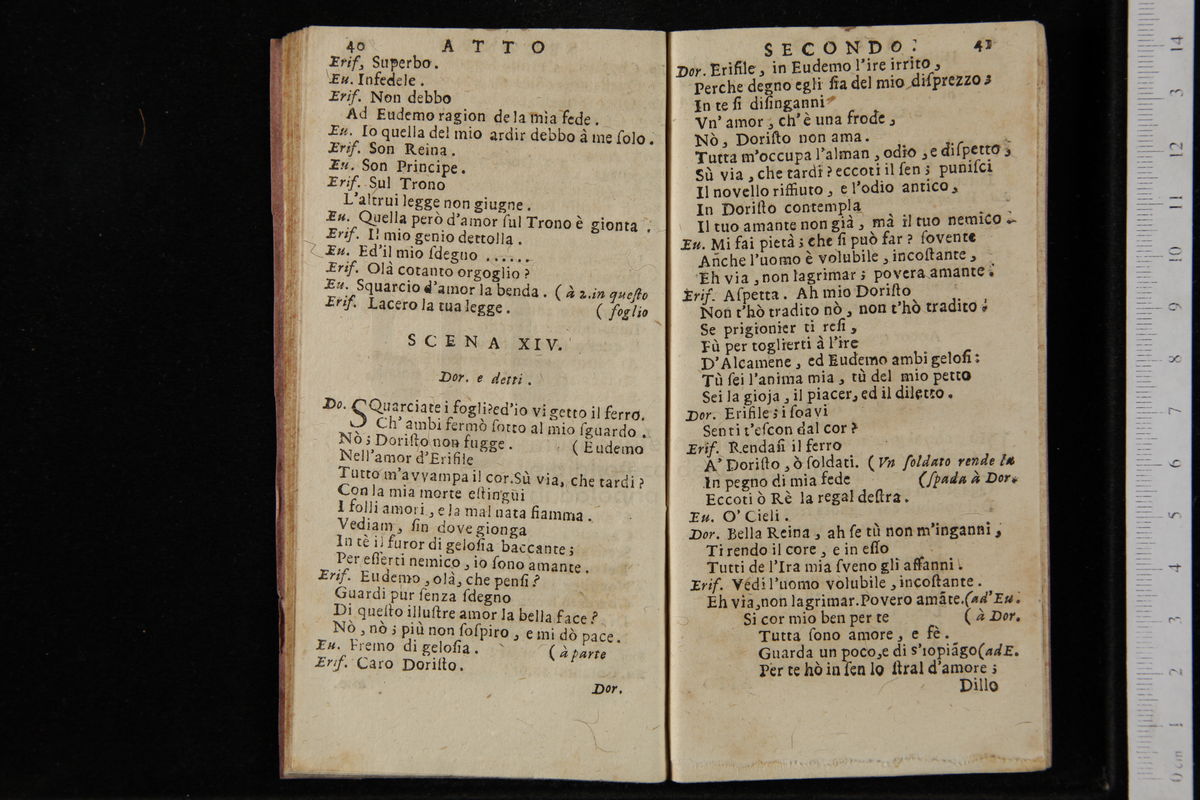 40 ATTO
Erif, Superbo.
Eu. Infedele.
Erif. Non debbo
Ad Eudemo ragion de la mia fede.
Eu. Io quella del mio ardir debbo à me ſolo.
Erif. Son Reina.
Eu. Son Principe.
Erif. Sul Trono
L'altrui legge non giugne.
Eu. Quella però d'amor ſul Trono è gionta.
Erif. Il mio genio dettolla.
Eu. Ed'il mio ſdegno ......
Erif. Olà cotanto orgoglio?
Eu. Squarcio d'amor la benda. (à 2. in queſto
Erif. Lacero la tua legge. ( foglio
SCENA XIV.
Dor. e detti.
Do. SQuarciate i fogli?ed'io vi getto il ferro.
Ch' ambi fermò ſotto al mio ſguardo.
Nò; Doriſto non fugge. ( Eudemo
Nell'amor d'Erifile
Tutto m'avvampa il cor.Sù via, che tardi?
Con la mia morte eſtingui
I folli amori, e la mal nata fiamma.
Vediam, ſin dove gionga
In tè il furor di geloſia baccante;
Per eſſerti nemico, io ſono amante.
Erif. Eudemo, olà, che penſi?
Guardi pur ſenza ſdegno
Di queſto illuſtre amor la bella face?
Nò, nò; più non ſoſpiro, e mi dò pace.
Eu. Fremo di geloſia. (à parte
Erif. Caro Doriſto.
Dor.
SECONDO. 41
Dor. Erifile, in Eudemo l'ire irrito,
Perche degno egli ſia del mio diſprezzo;
In te ſi diſinganni
Vn' amor, ch'è una frode,
Nò, Doriſto non ama.
Tutta m'occupa l'alman, odio, e diſpetto;
Sù via, che tardi? eccoti il ſen; puniſci
Il novello riffiuto, e l'odio antico,
In Doriſto contempla
Il tuo amante non già, mà il tuo nemico.
Eu. Mi fai pietà; che ſi può far? ſovente
Anche l'uomo è volubile, incoſtante,
Eh via, non lagrimar; povera amante.
Erif. Aſpetta. Ah mio Doriſto
Non t'hò tradito nò, non t'hò tradito:
Se prigionier ti reſi,
Fù per toglierti à l'ire
D'Alcamene, ed Eudemo ambi geloſi:
Tù ſei l'anima mia, tù del mio petto
Sei la gioja, il piacer, ed il diletto.
Dor. Erifile; i ſoavi
Senti t'eſcon dal cor?
Erif. Rendaſi il ferro
A' Doriſto, ò ſoldati. (Vn ſoldato rende la
In pegno di mia fede (ſpada à Dor.
Eccoti ò Rè la regal deſtra.
Eu. O' Cieli.
Dor. Bella Reina, ah ſe tù non m'inganni,
Ti rendo il core, e in eſſo
Tutti de l'Ira mia ſveno gli affanni.
Erif. Vedi l'uomo volubile, incoſtante.
Eh via,non lagrimar.Povero amãte.(ad' Eu.
Si cor mio ben per te ( à Dor.
Tutta ſono amore, e fè.
Guarda un poco,e di s'io piãgo(ad E.
Per te hò in ſen lo ſtral d'amore;
Dillo
14
13
12
11
10
9
8
7
6
5
4
3
2
1
0 cm